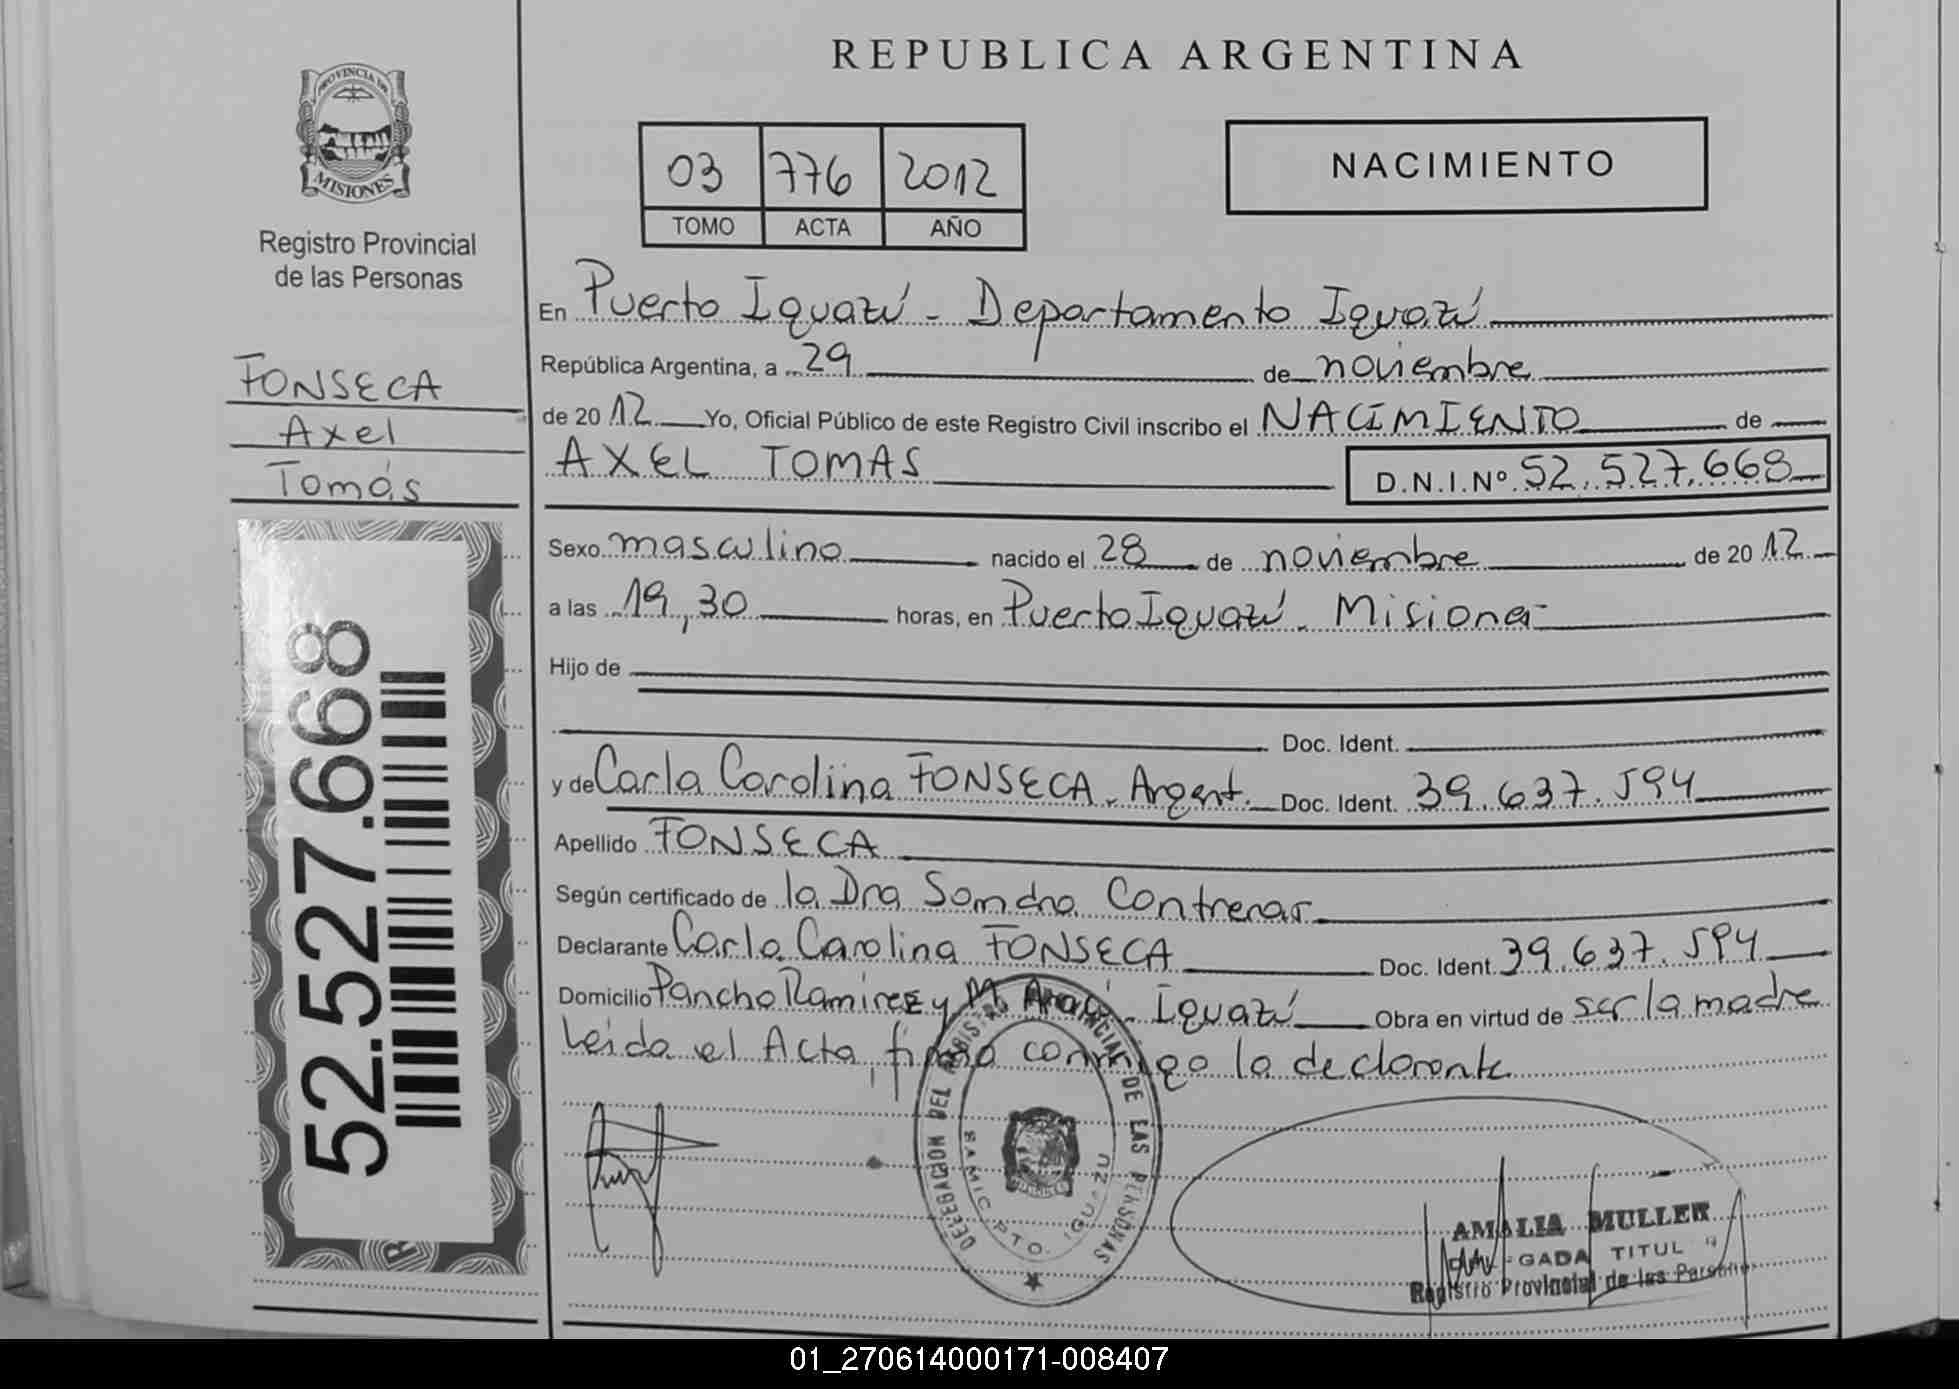 REPUBLICA ARGENTINA
PROVINCIA DE MISIONES
Registro Provincial
de las Personas
03 776 2012
TOMO ACTA AÑO
NACIMIENTO
FONSECA
Axel
Tomás
52.527.668
En Puerto Iguazú - Departamento Iguazú
República Argentina, a 29 de noviembre
de 2012 Yo, Oficial Público de este Registro Civil inscribo el NACIMIENTO de
AXEL TOMAS D.N.I.Nº 52.527.668
Sexo masculino nacido el 28 de noviembre de 2012
a las 19,30 horas, en Puerto Iguazú - Misiones
Hijo de
Doc. Ident.
y de Carla Carolina FONSECA - Argent. Doc. Ident. 39.637.594
Apellido FONSECA
Según certificado de la Dra Sandra Contreras
Declarante Carla Carolina FONSECA Doc. Ident. 39.637.594
Domicilio Pancho Ramirez y M. - Iguazú Obra en virtud de ser la madre
Leida el Acta, firma conmigo la declarante
DELEGACION DEL REGISTRO PROVINCIAL DE LAS PERSONAS
PTO. IGUAZU
AMALIA MULLER
Registro Provincial de las Personas
01_270614000171-008407